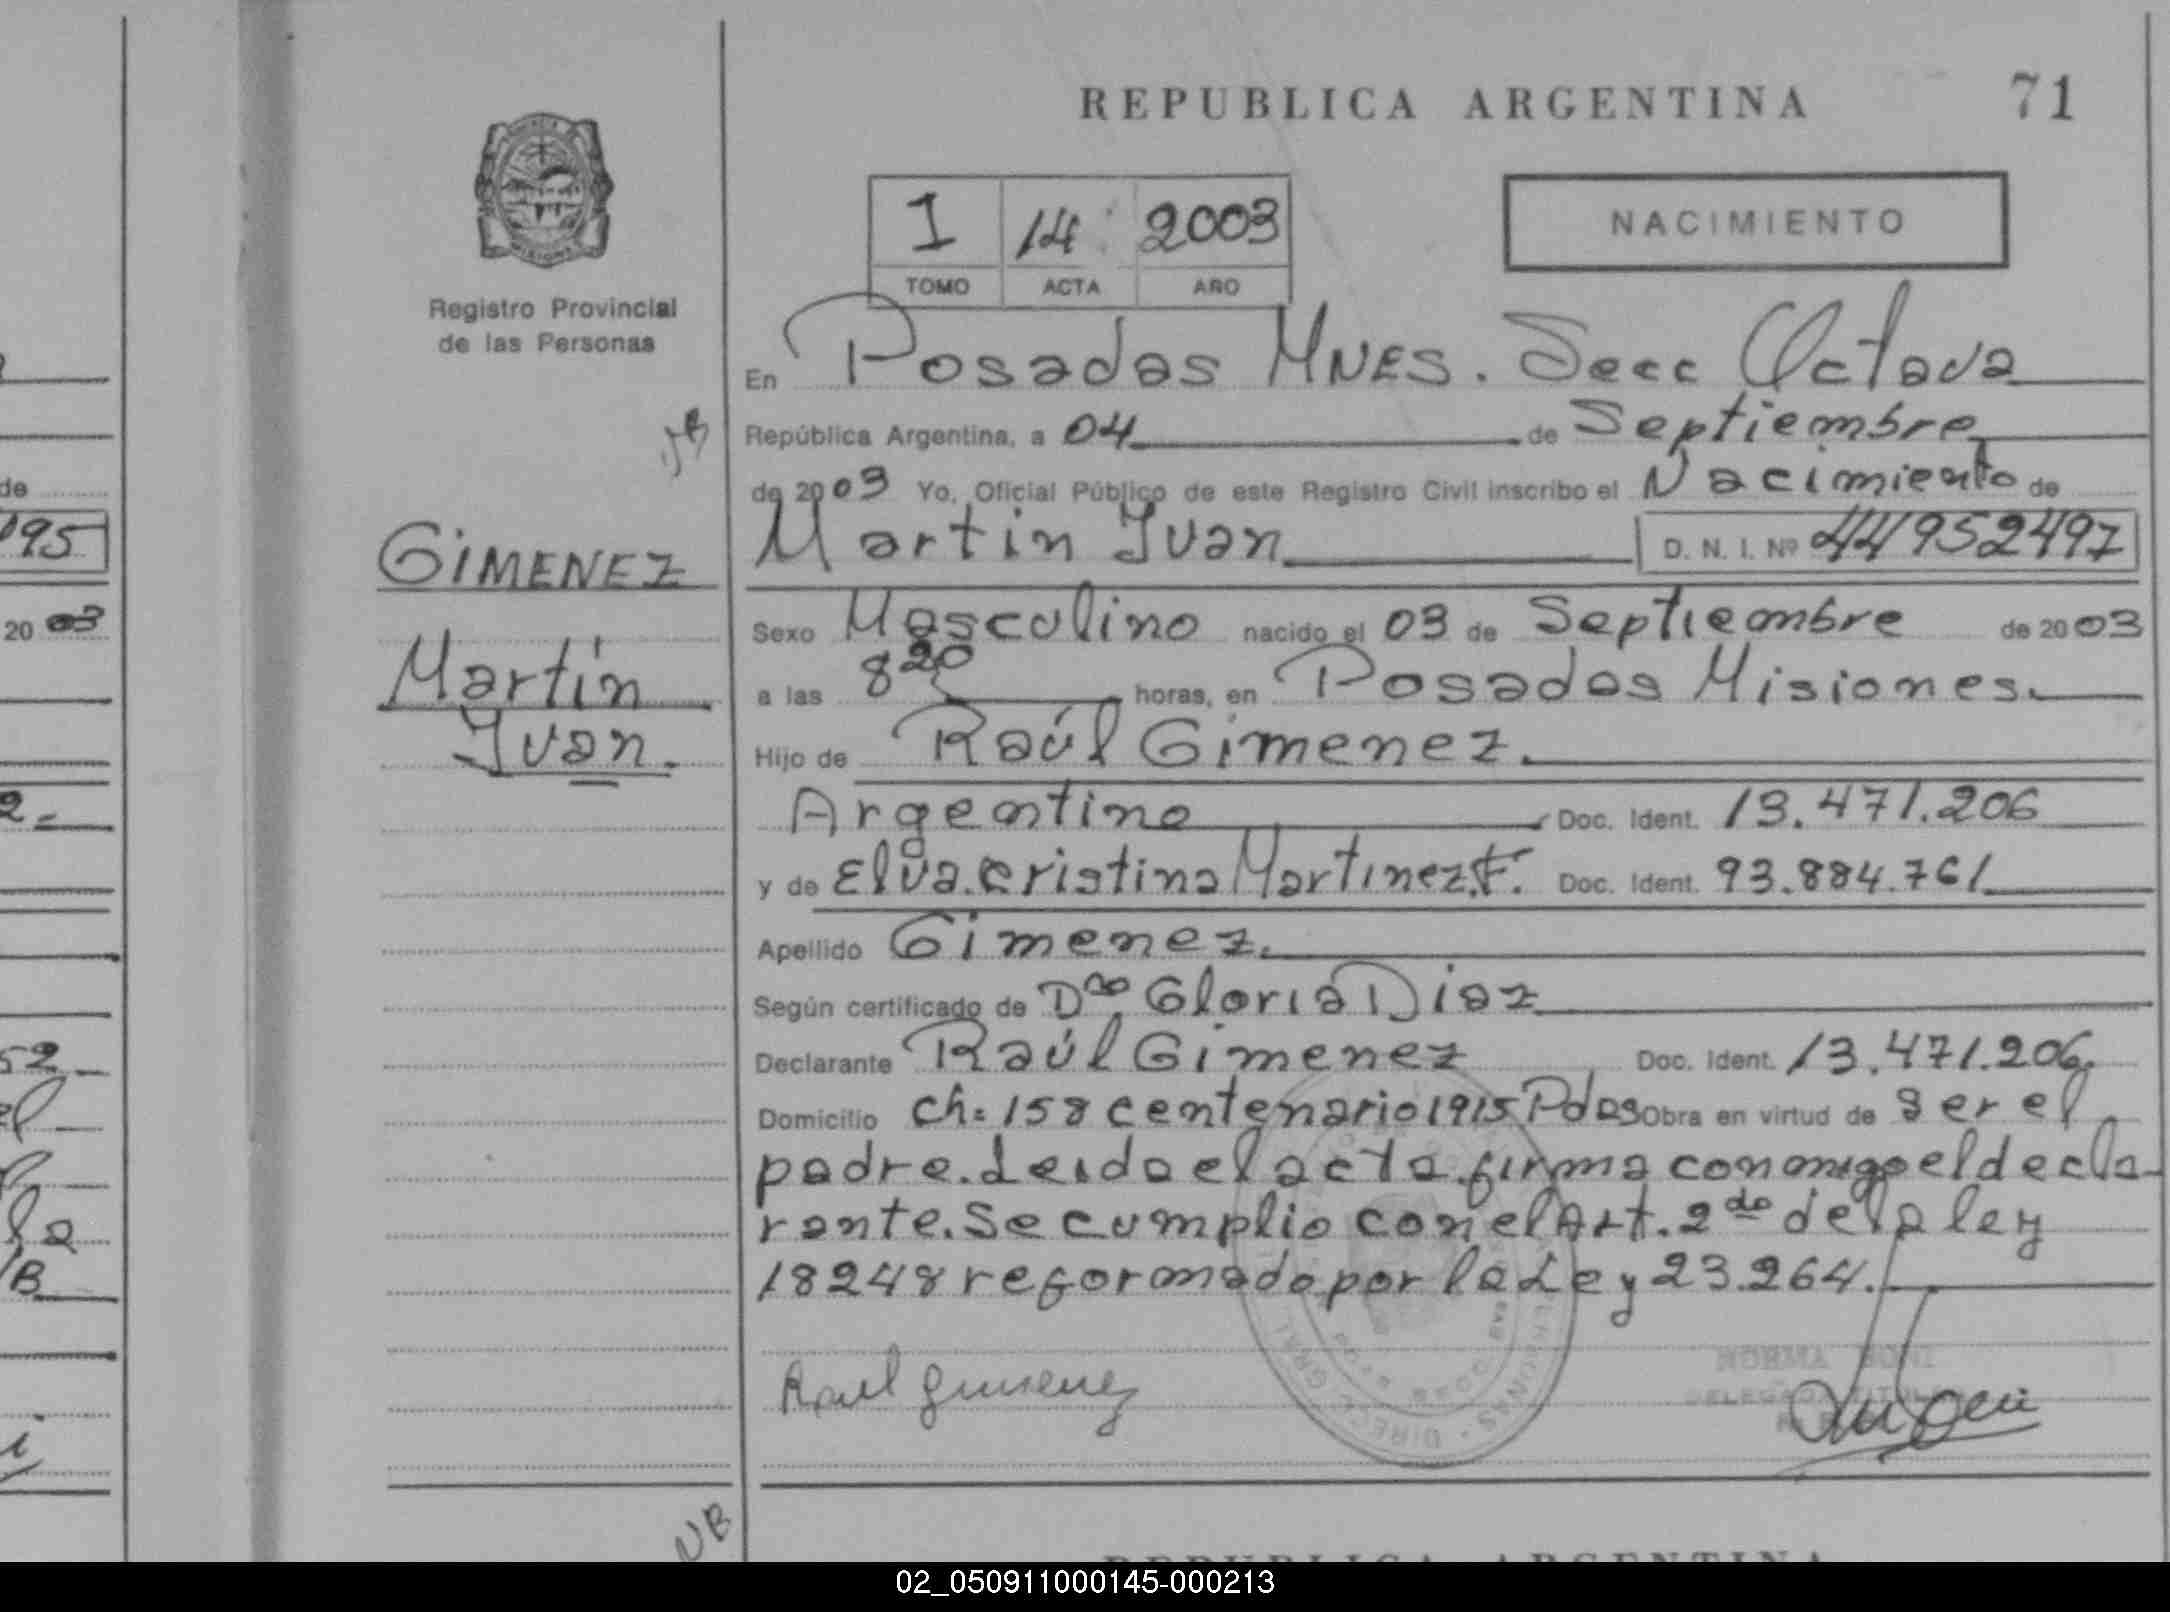 REPUBLICA ARGENTINA 71
I 14 2003
TOMO ACTA AÑO
NACIMIENTO
Registro Provincial
de las Personas
En Posadas MNES. Secc Octava
República Argentina, a 04 de Septiembre
de 2003 Yo, Oficial Público de este Registro Civil inscribo el Nacimiento de
Martin Ivan D. N. I. Nº 44952497
GIMENEZ
Martin
Ivan.
Sexo Masculino nacido el 03 de Septiembre de 2003
a las 8 20 horas, en Posadas Misiones.
Hijo de Raúl Gimenez.
Argentino Doc. Ident. 13.471.206
y de Elva Cristina Martinez.F. Doc. Ident. 93.884.761
Apellido Gimenez.
Según certificado de Dra Gloria Diaz
Declarante Raúl Gimenez Doc. Ident. 13.471.206.
Domicilio Ch=158 centenario 1915 Pdas Obra en virtud de ser el
padre. Leida el acta firma conmigo el decla-
rante. Se cumplio con el Art. 2do de la ley
18248 reformado por la Ley 23.264.
Raul Gimenez
NORMA
DELEGADA TITULAR
NB
REPUBLICA ARGENTINA
de
195
20 03
2-
52
la
02_050911000145-000213